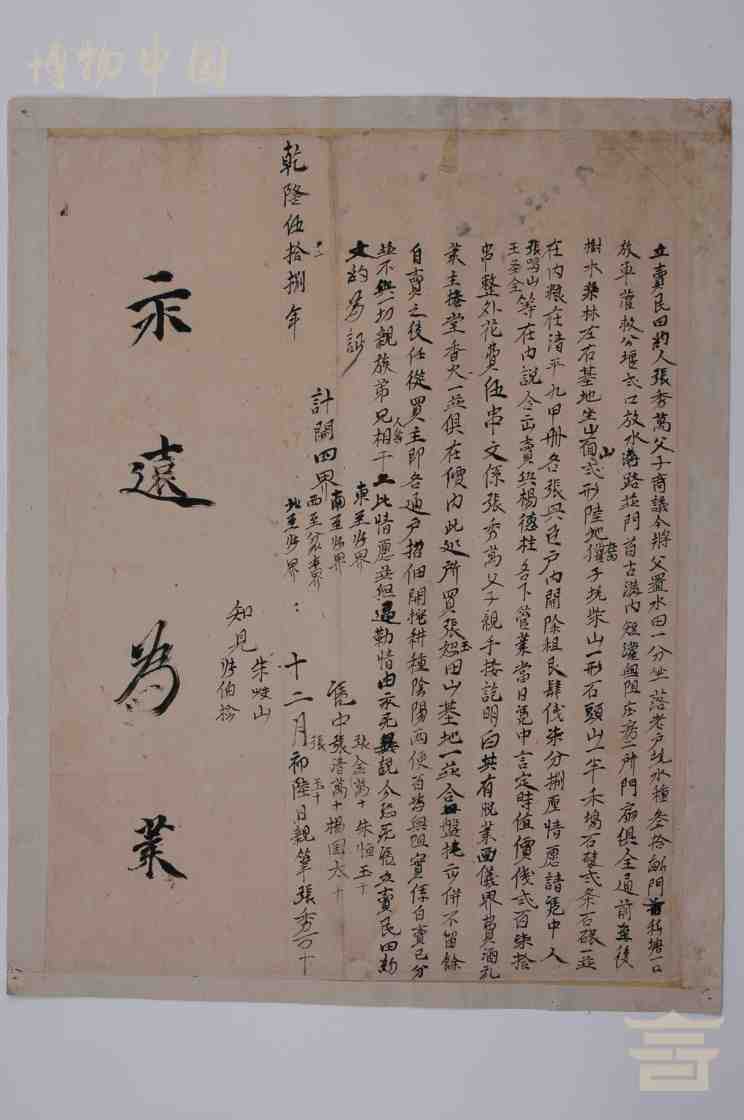 博物中国
立賣民田約人張秀萬父子商議今將父置水田一分坐落老戶
放車灌救公堰弍口放水溝路並門首古溝內短灌無阻庄房一所門扇俱全通前至後
樹水桑林左右基地坐山面山弍形陸地 子 柴山一形石頭山一半禾場石磙弍条石碾一並
在內糧在清平九甲册名張興 戶內開除租艮肆伐柒分捌厘情愿請凴中人
張 山王 全等在內說合出賣與楊德柱名下管業當日凴中言定時值價伐弍百柒拾
串整外花費伍串文係張秀萬父子親手接訖明白其有脫業画儀界費酒礼
業主捲堂香火一並俱在價內此延所買張 玉田山基地一並合盤捲 併不留餘
自賣之後任從買主即名過戶招佃開挖耕種陰陽兩便百為無阻實係自賣己分
並不與一切親族弟兄人等相干 此情愿並無逼勒情由 無異說今恐無凴立賣民田
文約為証
計開四界
東至 界
南至 界
西至 界
北至 界
凴中 張金萬十 朱恒玉十
張清萬十 楊国太十
張 玉十
知見 朱 山
伯
乾隆伍拾捌年十二月初陸日親筆張秀万十
示遠為業